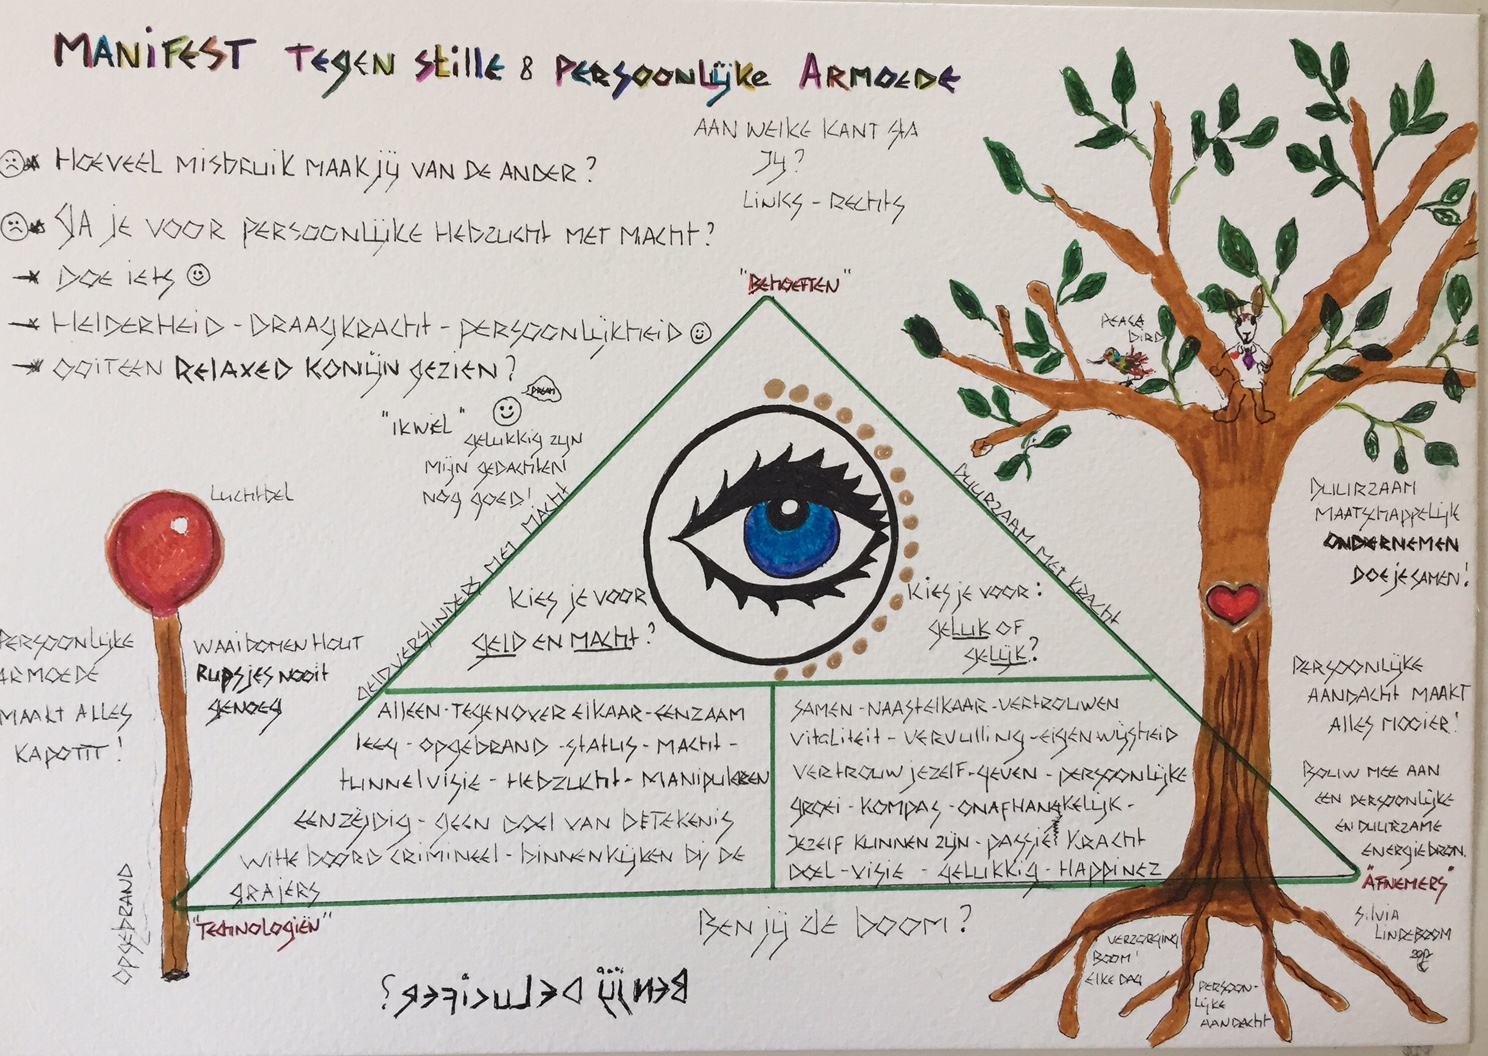 MANiFEST TEGEN Stille & PERSOONLijke ARMOEDE
AAN WELKE KANT StA
Jij?
LiNKS - RECHTS
HOEVEEL MiSbRuiK MAAK Jij VAN DE ANDER?
GA JE VOOR PERSOONLIJKE HEbZUCHt MET MACHt?
DOE iEtS
HELDERHEiD - DRAAGKRACHt - PERSOONLijKHEiD
OOiTEEN RELAXED KONijN GEZiEN?
"BEHOEFTEN"
DREAM
"iKWEL"
GELUKKiG ZijN
MijN GEDACHTEN
NOG GOED!
PEACE
BiRD
LUCHtbEL
GELDVERSLiNDERS MET MACHT
DUURZAAM MET KRACHT
DUURZAAM
MAATSCHAPPELijK
ONDERNEMEN
DOE JE SAMEN!
KiES JE VOOR
GELD EN MACHt?
KiES JE VOOR:
GELUK OF
GELijK?
PERSOONLijKE
ARMOEDE
MAAKT ALLES
KAPOTTT!
WAAibOMEN HOUT
RUPSJES NOOiT
GENOEG
PERSOONLijKE
AANDACHT MAAKT
ALLES MOOiER!
ALLEEN - TEGENOVER ELKAAR - EENZAAM
LEEG - OPGEBRAND - STATUS - MACHT -
tUNNELViSiE - HEbZUCHt - MANiPULEREN
EENZijDiG - GEEN DOEL VAN bETEKENiS
WiTTE bOORD CRiMiNEEL - biNNENKijKEN bij DE
GRAJERS
SAMEN - NAAST ELKAAR - VERTROUWEN
ViTALiTEiT - VERVULLiNG - EiGENWijSHEiD
VERTROUW JEZELF - GEVEN - PERSOONLijKE
GROEi - KOMPAS - ONAFHANKELijK -
JEZELF KUNNEN ZijN - PASSiE KRACHT
DOEL - ViSiE - GELUKKiG - HAPPiNEZ
BOUW MEE AAN
EEN PERSOONLijKE
EN DUURZAME
ENERGiEbRON.
"AFNEMERS"
OPGEBRAND
"TECHNOLOGiËN"
BEN jij de boom?
BEN jij DE LuciFER?
SiLViA
LiNDEBOOM
VERZORGiNG
BOOM!
ELKE DAG
PERSOON-
LijKE
AANDACHT